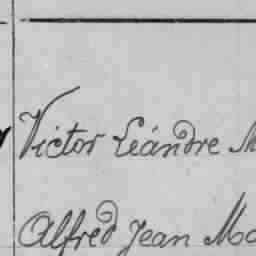 Victor Léandre
Alfred Jean